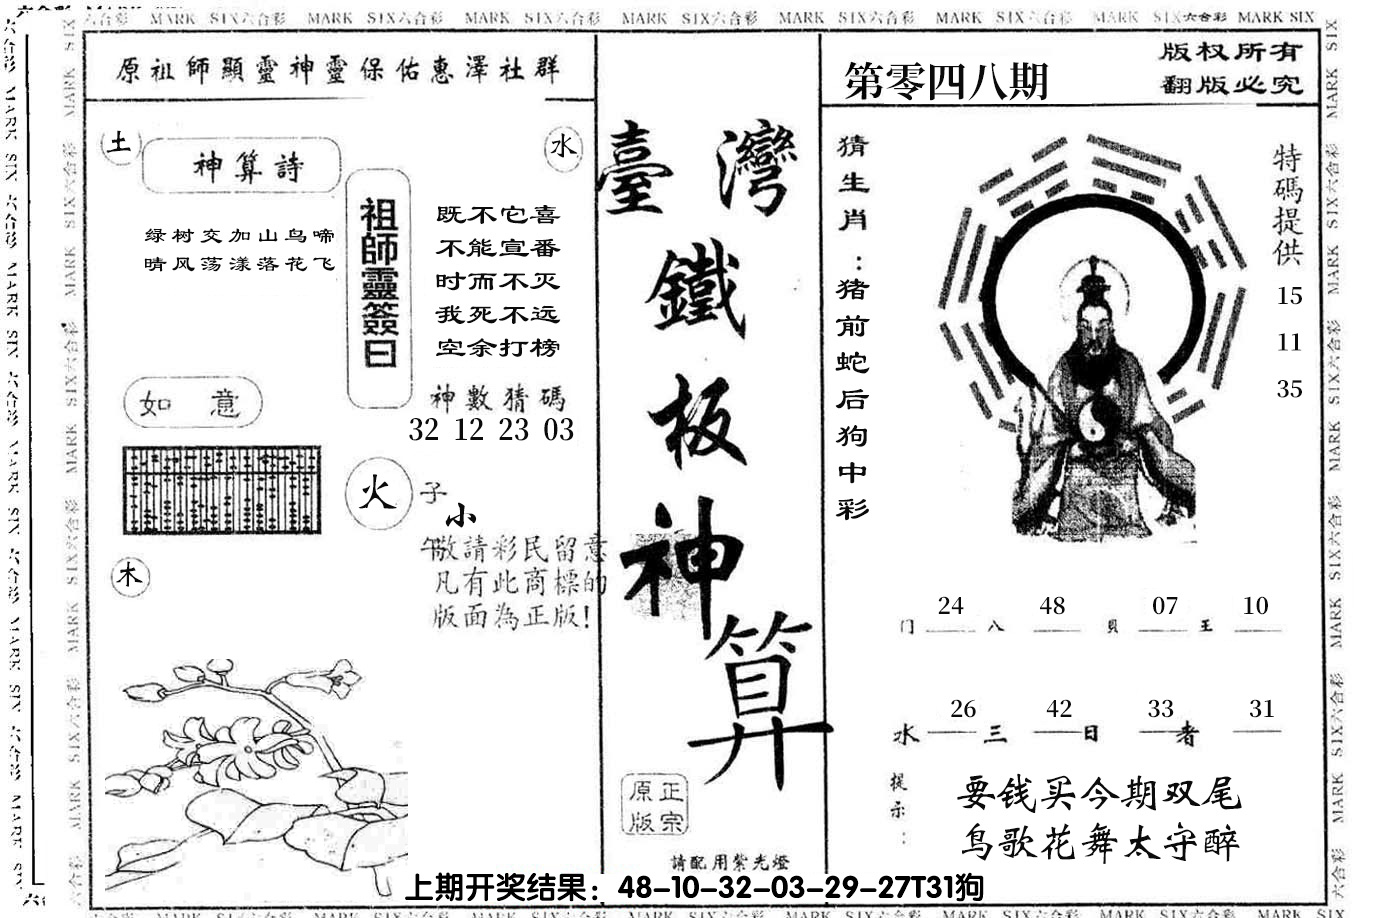 MARK SIX六合彩 MARK SIX六合彩 MARK SIX六合彩 MARK SIX六合彩 MARK SIX六合彩 MARK SIX六合彩 MARK SIX六合彩 MARK SIX
原祖師顯靈神靈保佑惠澤社群
土
神算詩
水
绿树交加山鸟啼
晴风荡漾落花飞
祖師靈簽曰
既不它喜
不能宣番
时而不灭
我死不远
空余打榜
神數猜碼
32 12 23 03
如意
火
子
小
午
敬請彩民留意
凡有此商標的
版面為正版!
木
臺灣
鐵
板
神
算
正宗
原版
請配用紫光燈
第零四八期
版权所有
翻版必究
猜生肖:猪前蛇后狗中彩
特碼提供
15
11
35
24 48 07 10
门 八 貝 王
26 42 33 31
水 三 日 者
提示:
要钱买今期双尾
鸟歌花舞太守醉
上期开奖结果：48-10-32-03-29-27T31狗